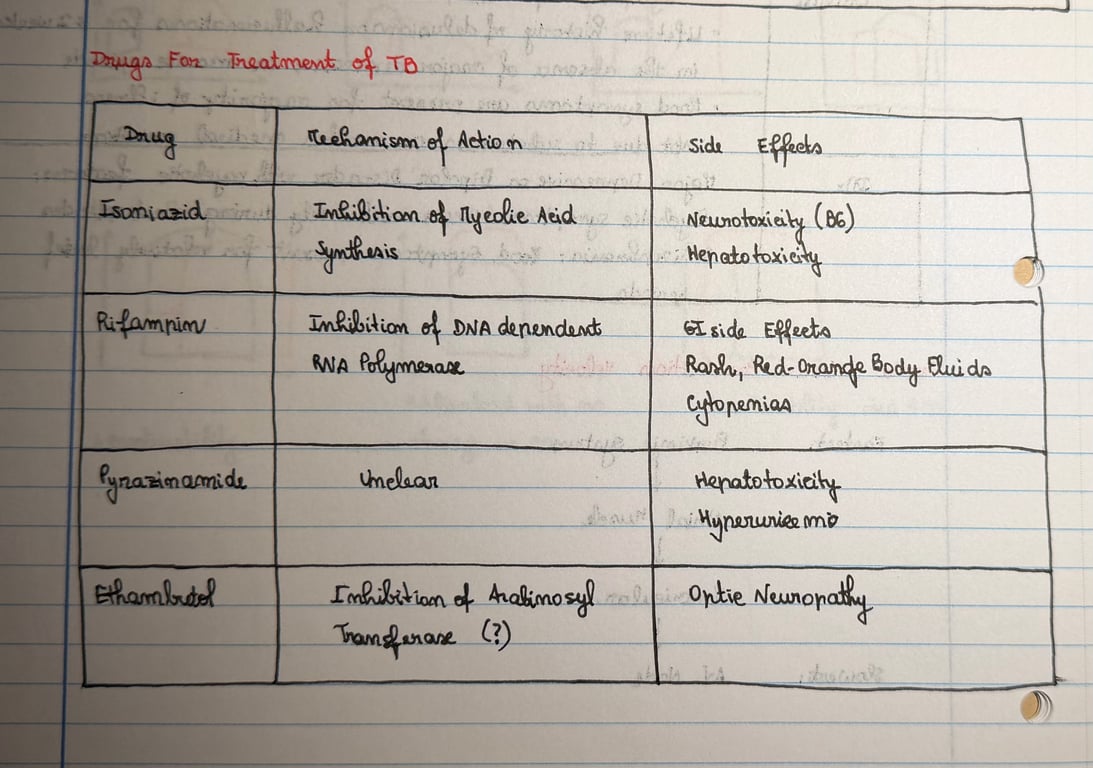 Drugs For Treatment of TB
Drug
Mechanism of Action
Side Effects
Isoniazid
Inhibition of Mycolic Acid
Synthesis
Neurotoxicity (B6)
Hepatotoxicity
Rifampin
Inhibition of DNA dependent
RNA Polymerase
GI side Effects
Rash, Red-Orange Body Fluids
Cytopenias
Pyrazinamide
Unclear
Hepatotoxicity
Hyperuricemia
Ethambutol
Inhibition of Arabinosyl
Transferase (?)
Optic Neuropathy